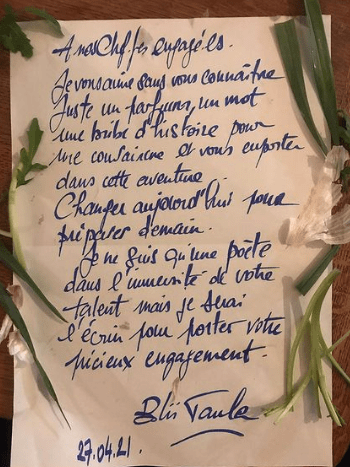 A nos Cheffes engagées.
Je vous aime sans vous connaître
Juste un parfum, un mot
une bribe d'histoire pour
me convaincre et vous emporter
dans cette aventure.
Changer aujourd'hui pour
préparer demain.
Je ne suis qu'une poète
dans l'immensité de votre
talent mais je serai
l'écrin pour porter votre
précieux engagement.
27.04.21.